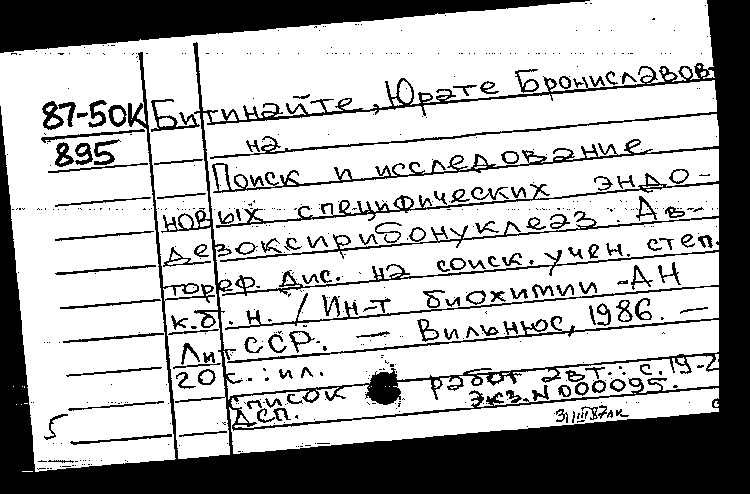 87-50К Битинайте, Юрате Брониславов-
895 на.
Поиск и исследование
новых специфических эндо-
дезоксирибонуклеаз : Ав-
тореф. дис. на соиск. учен. степ.
к.б.н. / Ин-т биохимии АН
Лит ССР. — Вильнюс, 1986. —
20 с. : ил.
список работ авт.: с. 19-2
ДСП. Экз. N 000095.